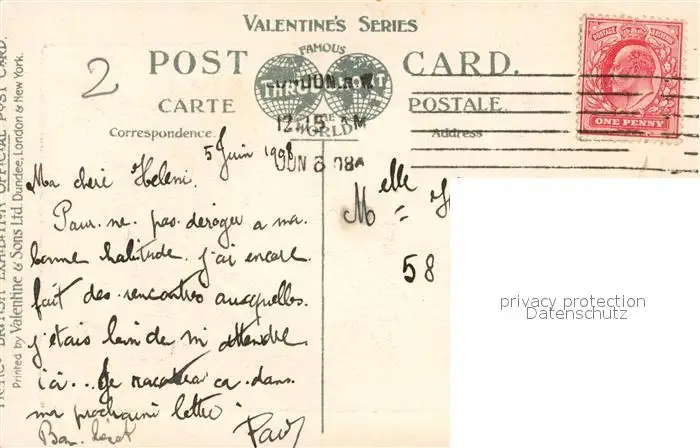 VALENTINE'S SERIES
2
POST CARD.
FAMOUS
THROUGHOUT
THE
WORLD
CARTE POSTALE.
Correspondence. Address
POSTAGE REVENUE
ONE PENNY
LONDON. N.W
12.15 AM
JUN 6 08
5 Juin 1908
Ma chère Heleni.
Pour ne pas déroger a ma
bonne habitude j'ai encore
fait des rencontres auxquelles
j'etais loin de m'attendre
ici... Je racontrai ca dans
ma prochaine lettre.
Bon
Paul
Melle
58
privacy protection
Datenschutz
FRANCO BRITISH EXHIBITION OFFICIAL POST CARD.
Printed by Valentine & Sons Ltd. Dundee, London & New York.